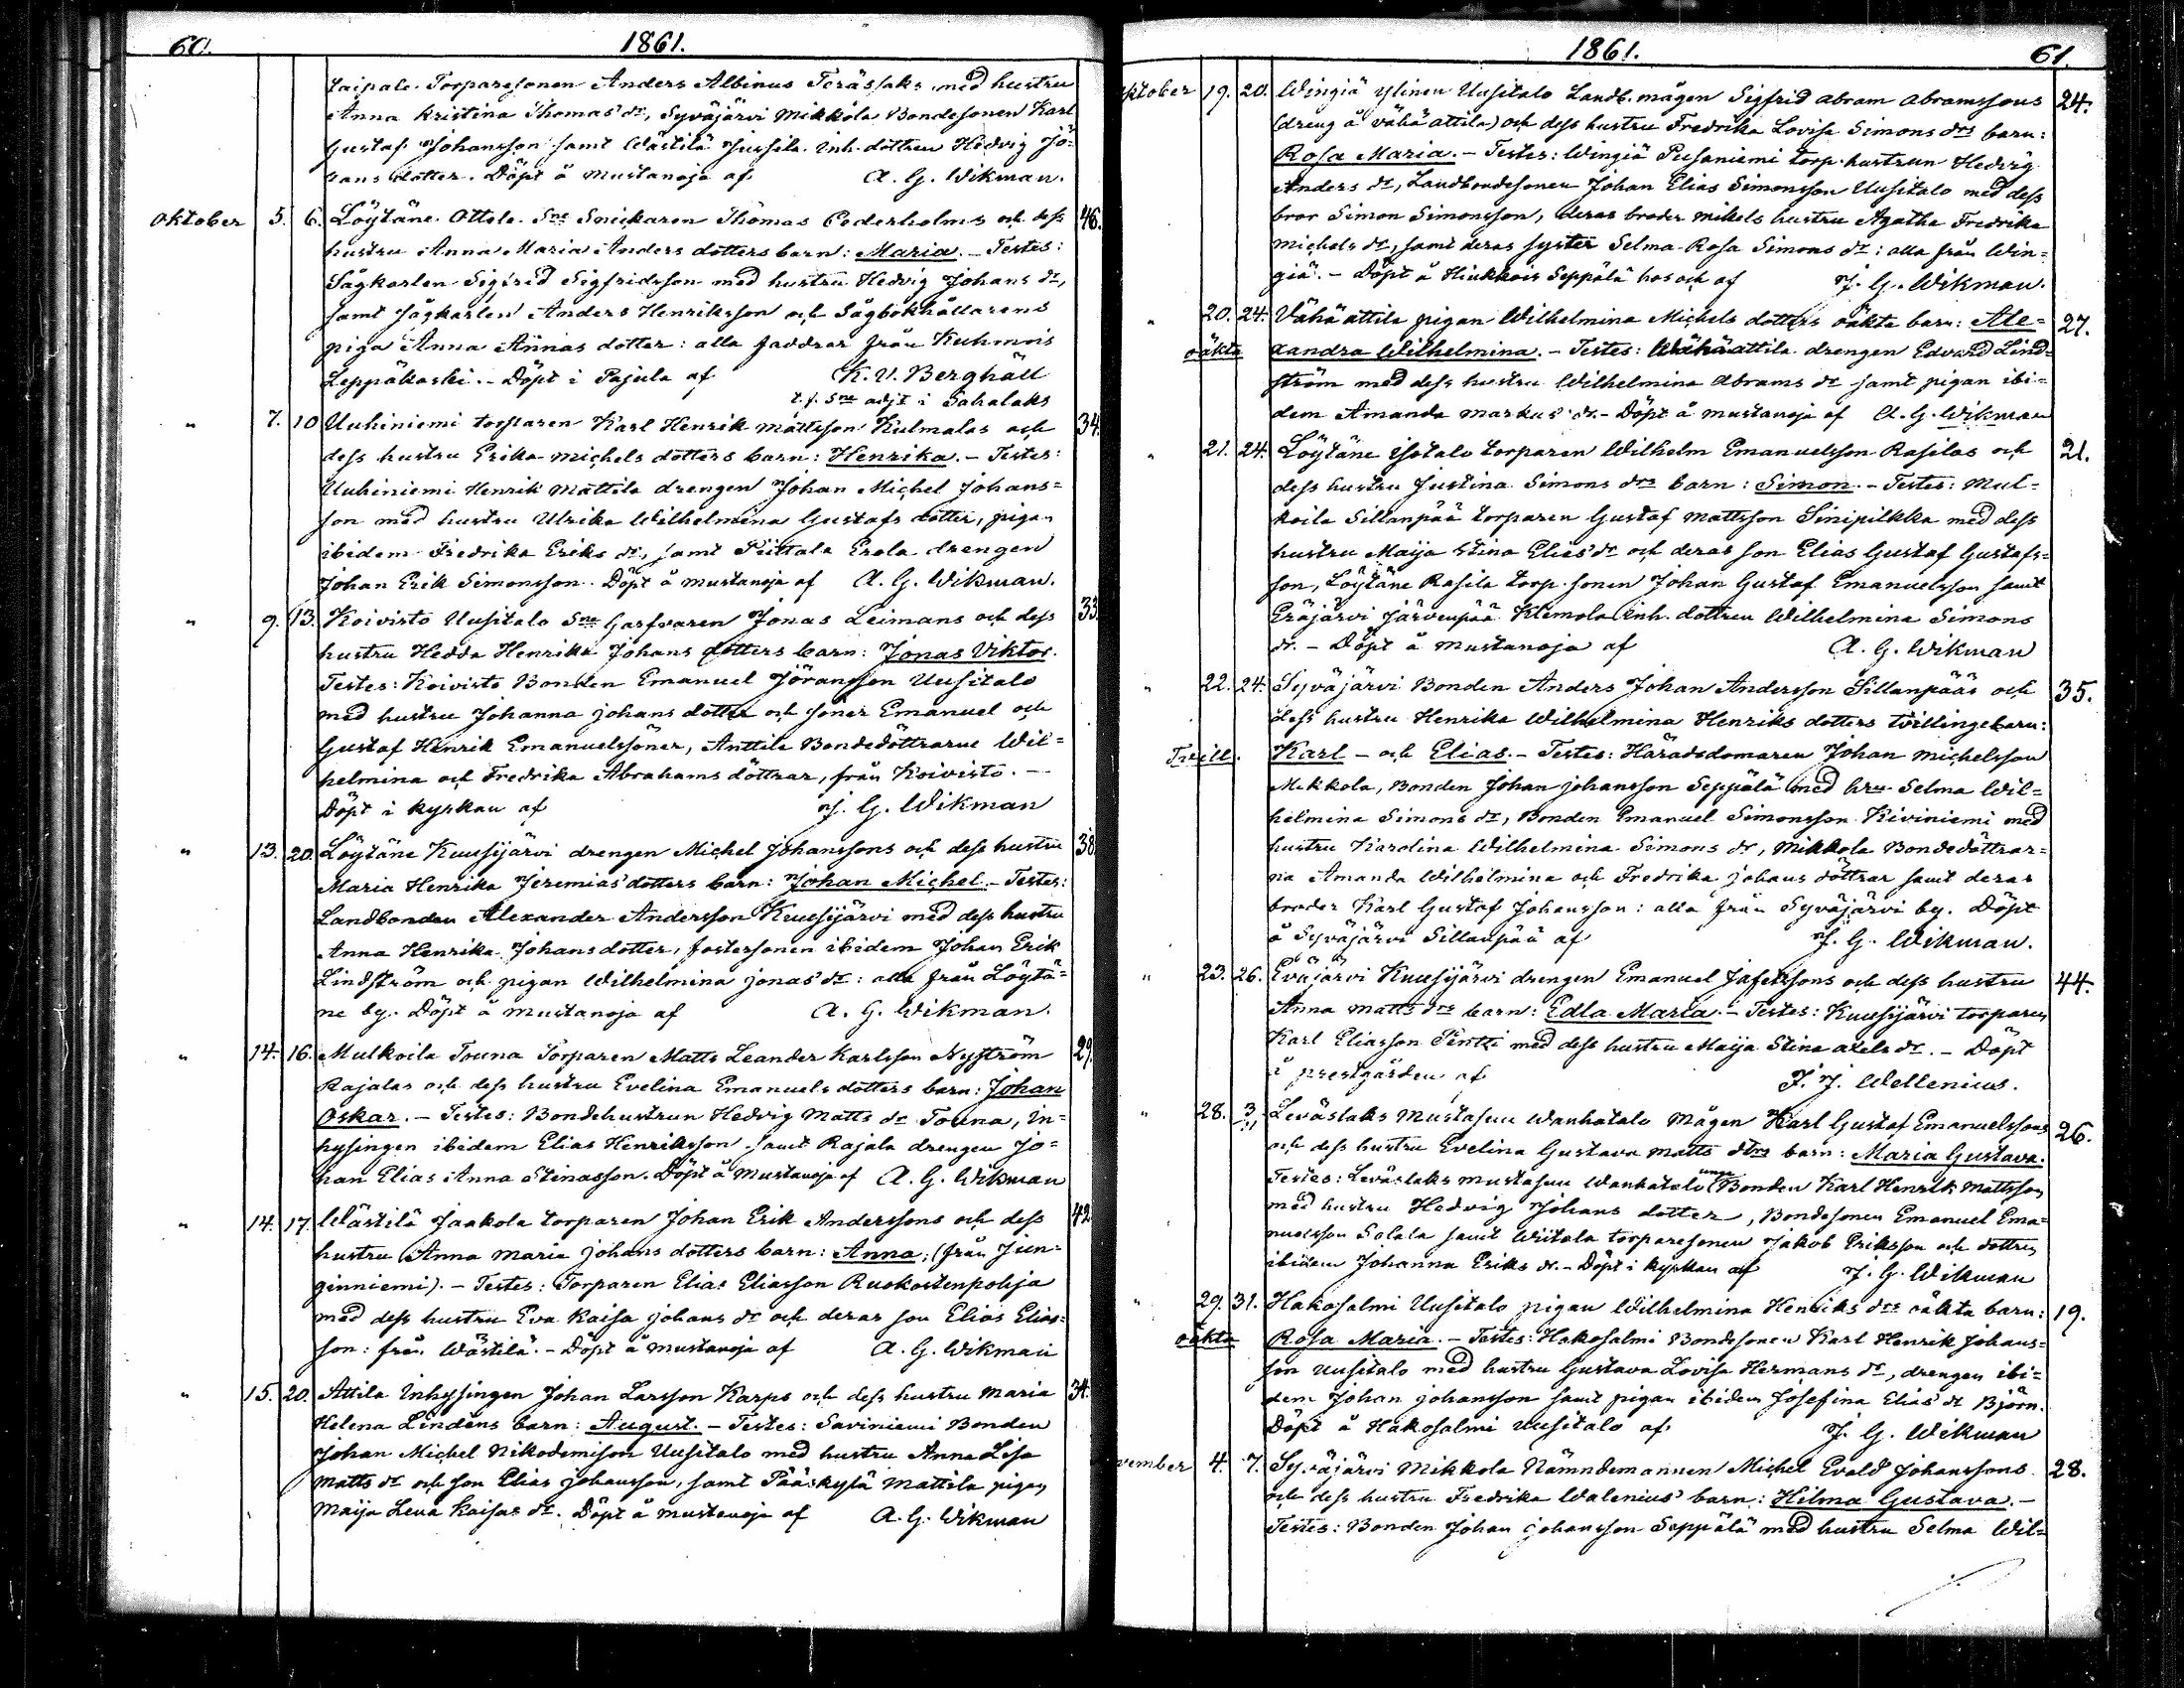 60. 1861.
taipale Torparesonen Anders Albinus Teräslaks med hustru
Anna Kristina Thomas dr, Syväjärvi Mikkola Bondesonen Karl
Gustaf Johansson samt Wästilä Jussila Inh. dottren Hedvig Jo=
hans dotter. Döpt å Mustanoja af A. G. Wikman.
Oktober 5. 6. Löytäne Ottole Sne Snickaren Thomas Cederholms och dess 46.
hustru Anna Maria Anders dotters barn: Maria. – Testes:
Sågkarlen Sigfrid Sigfridsson med hustru Hedvig Johans dr,
samt sågkarlen Anders Henriksson och Sågbokhållarens
piga Anna Annas dotter: alla faddrar från Kuhmois
Leppäkoski. – Döpt i Pajula af K. V. Berghäll
t.f. Sne adjt i Sahalaks
" 7. 10 Uuhiniemi torparen Karl Henrik Mattsson Kulmalas och 34.
dess hustru Erika Michels dotters barn: Henrika. – Testes:
Uuhiniemi Henrik Mattila drengen Johan Michel Johans=
son med hustru Ulrika Wilhelmina Gustafs dotter, pigan
ibidem Fredrika Eriks dr, samt Pittala Erola drengen
Johan Erik Simonsson. Döpt å Mustanoja af A. G. Wikman.
" 9. 13. Koivisto Uusitalo Sne Garfvaren Jonas Leimans och dess 33.
hustru Hedda Henrika Johans dotters barn: Jonas Viktor.
Testes: Koivisto Bonden Emanuel Jöransson Uusitalo
med hustru Johanna Johans dotter och söner Emanuel och
Gustaf Henrik Emanuelssöner, Anttila Bondedöttrarne Wil=
helmina och Fredrika Abrahams döttrar, från Koivisto. –
Döpt i kyrkan af J. G. Wikman
" 13. 20. Löytäne Kuusijärvi drengen Michel Johanssons och dess hustru 38.
Maria Henrika Jeremias dotters barn: Johan Michel. – Testes:
Landbonden Alexander Andersson Kuusijärvi med dess hustru
Anna Henrika Johans dotter, fostersonen ibidem Johan Erik
Lindström och pigan Wilhelmina Jonas dr: alla från Löytä=
ne by. Döpt å Mustanoja af A. G. Wikman.
" 14. 16. Mulkoila Touna Torparen Matts Leander Karlsson Nyström 29.
Rajalas och dess hustru Evelina Emanuels dotters barn: Johan
Oskar. – Testes: Bondehustrun Hedvig Matts dr Touna, In=
hysingen ibidem Elias Henriksson samt Rajala drengen Jo=
han Elias Anna Stinasson. Döpt å Mustanoja af A. G. Wikman
" 14. 17. Wästilä Jaakola torparen Johan Erik Anderssons och dess 42.
hustru Anna Maria Johans dotters barn: Anna; (från Jun=
ginniemi). – Testes: Torparen Elias Eliasson Ruokostenpohja
med dess hustru Eva Kaisa Johans dr och deras son Elias Elias=
son: från Wästilä. – Döpt å Mustanoja af A. G. Wikman
" 15. 20. Attila Inhysingen Johan Larsson Karps och dess hustru Maria 34.
Helena Lindéns barn: August. – Testes: Saviniemi Bonden
Johan Michel Nikodemisson Uusitalo med hustru Anna Lisa
Matts dr och son Elias Johansson, samt Pääskylä Mattila pigan
Maija Lena Kaisas dr. Döpt å Mustanoja af A. G. Wikman
1861. 61.
ktober 19. 20. Wingiä Ylinen Uusitalo Landb. mågen Sigfrid Abram Abramssons 24.
(dreng å Vähä attila) och dess hustru Fredrika Lovisa Simons drs barn:
Rosa Maria. – Testes: Wingiä Pusaniemi torp. hustrun Hedvig
Anders dr, Landbondesonen Johan Elias Simonsson Uusitalo med dess
bror Simon Simonsson, deras broder Mikels hustru Agatha Fredrika
Michels dr, samt deras syster Selma Rosa Simons dr: alla från Win=
giä. – Döpt å Hiukkois Seppälä hos och af J. G. Wikman.
" 20. 24. Vähä attila pigan Wilhelmina Michels dotters oäkta barn: Ale= 27.
oäkta xandra Wilhelmina. – Testes: Wähäattila drengen Edvard Lind=
ström med dess hustru Wilhelmina Abrams dr samt pigan ibi=
dem Amanda Markus dr. – Döpt å Mustanoja af A. G. Wikman
" 21. 24. Löytäne Isotalo torparen Wilhelm Emanuelsson Rasilas och 21.
dess hustru Justina Simons drs barn: Simon. – Testes: Mul=
koila Sillanpää torparen Gustaf Mattsson Sinipilkka med dess
hustru Maija Stina Elias dr och deras son Elias Gustaf Gustafs=
son, Löytäne Rasila torp. sonen Johan Gustaf Emanuelsson samt
Eräjärvi Järvenpää Klemola Inh. dottren Wilhelmina Simons
dr. – Döpt å Mustanoja af A. G. Wikman
" 22. 24. Syväjärvi Bonden Anders Johan Andersson Sillanpääs och 35.
dess hustru Henrika Wilhelmina Henriks dotters tvillingebarn:
Tvill. Karl – och Elias. – Testes: Häradsdomaren Johan Michelsson
Mikkola, Bonden Johan Johansson Seppälä med hru Selma Wil=
helmina Simons dr, Bonden Emanuel Simonsson Kiviniemi med
hustru Karolina Wilhelmina Simons dr, Mikkola Bondedöttrar=
na Amanda Wilhelmina och Fredrika Johans döttrar samt deras
broder Karl Gustaf Johansson: alla från Syväjärvi by. Döpt
å Syväjärvi Sillanpää af J. G. Wikman.
" 23. 26. Eväjärvi Kuusijärvi drengen Emanuel Jafetssons och dess hustru 44.
Anna Matts drs barn: Edla Maria. – Testes: Kuusijärvi torparen
Karl Eliasson Pentti med dess hustru Maija Stina Axels dr. – Döpt
i prestgården af J. J. Wellenius.
" 28. 3. Leväslaks Mustasuu Wanhatalo Mågen Karl Gustaf Emanuelssons 26.
och dess hustru Evelina Gustava Matts dtrs barn: Maria Gustava.
Testes: Leväslaks Mustasuu Wanhatalo unga Bonden Karl Henrik Mattsson
med hustru Hedvig Johans dotter, Bondesonen Emanuel Ema=
nuelsson Solala samt Writala torparesonen Jakob Eriksson och dottren
ibidem Johanna Eriks dr. – Döpt i kyrkan af J. G. Wikman
" 29. 31. Hakosalmi Uusitalo pigan Wilhelmina Henriks drs oäkta barn: 19.
oäkta Rosa Maria. – Testes: Hakosalmi Bondesonen Karl Henrik Johans=
son Uusitalo med hustru Gustava Lovisa Hermans dr, drengen ibi=
dem Johan Johansson samt pigan ibidem Josefina Elias dr Björn.
Döpt å Hakosalmi Uusitalo af J. G. Wikman
vember 4. 7. Syväjärvi Mikkola Nämndemannen Michel Evald Johanssons 28.
och dess hustru Fredrika Walenius' barn: Hilma Gustava. –
Testes: Bonden Johan Johansson Seppälä med hustru Selma Wil=